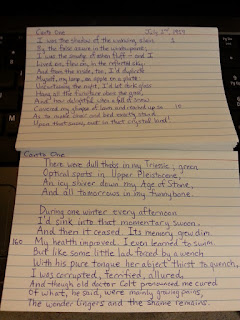 Canto One July 2nd, 1959
I was the shadow of the waxwing slain 1
By the false azure in the windowpane;
I was the smudge of ashen fluff - and I
Lived on, flew on, in the reflected sky.
And from the inside, too, I'd duplicate
Myself, my lamp, an apple on a plate:
Uncurtaining the night, I'd let dark glass
Hang all the furniture above the grass,
And how delightful when a fall of snow
Covered my glimpse of lawn and reached up so 10
As to make chair and bed exactly stand
Upon that snow, out in that crystal land!
Canto One
There were dull throbs in my Triassic; green
Optical spots in Upper Pleistocene,
An icy shiver down my Age of Stone,
And all tomorrows in my funnybone.
During one winter every afternoon
I'd sink into that momentary swoon.
And then it ceased. Its memory grew dim.
160 My health improved. I even learned to swim.
But like some little lad forced by a wench
With his pure tongue her abject thirst to quench,
I was corrupted, terrified, allured,
And though old doctor Colt pronounced me cured
Of what, he said, were mainly growing pains,
The wonder lingers and the shame remains.